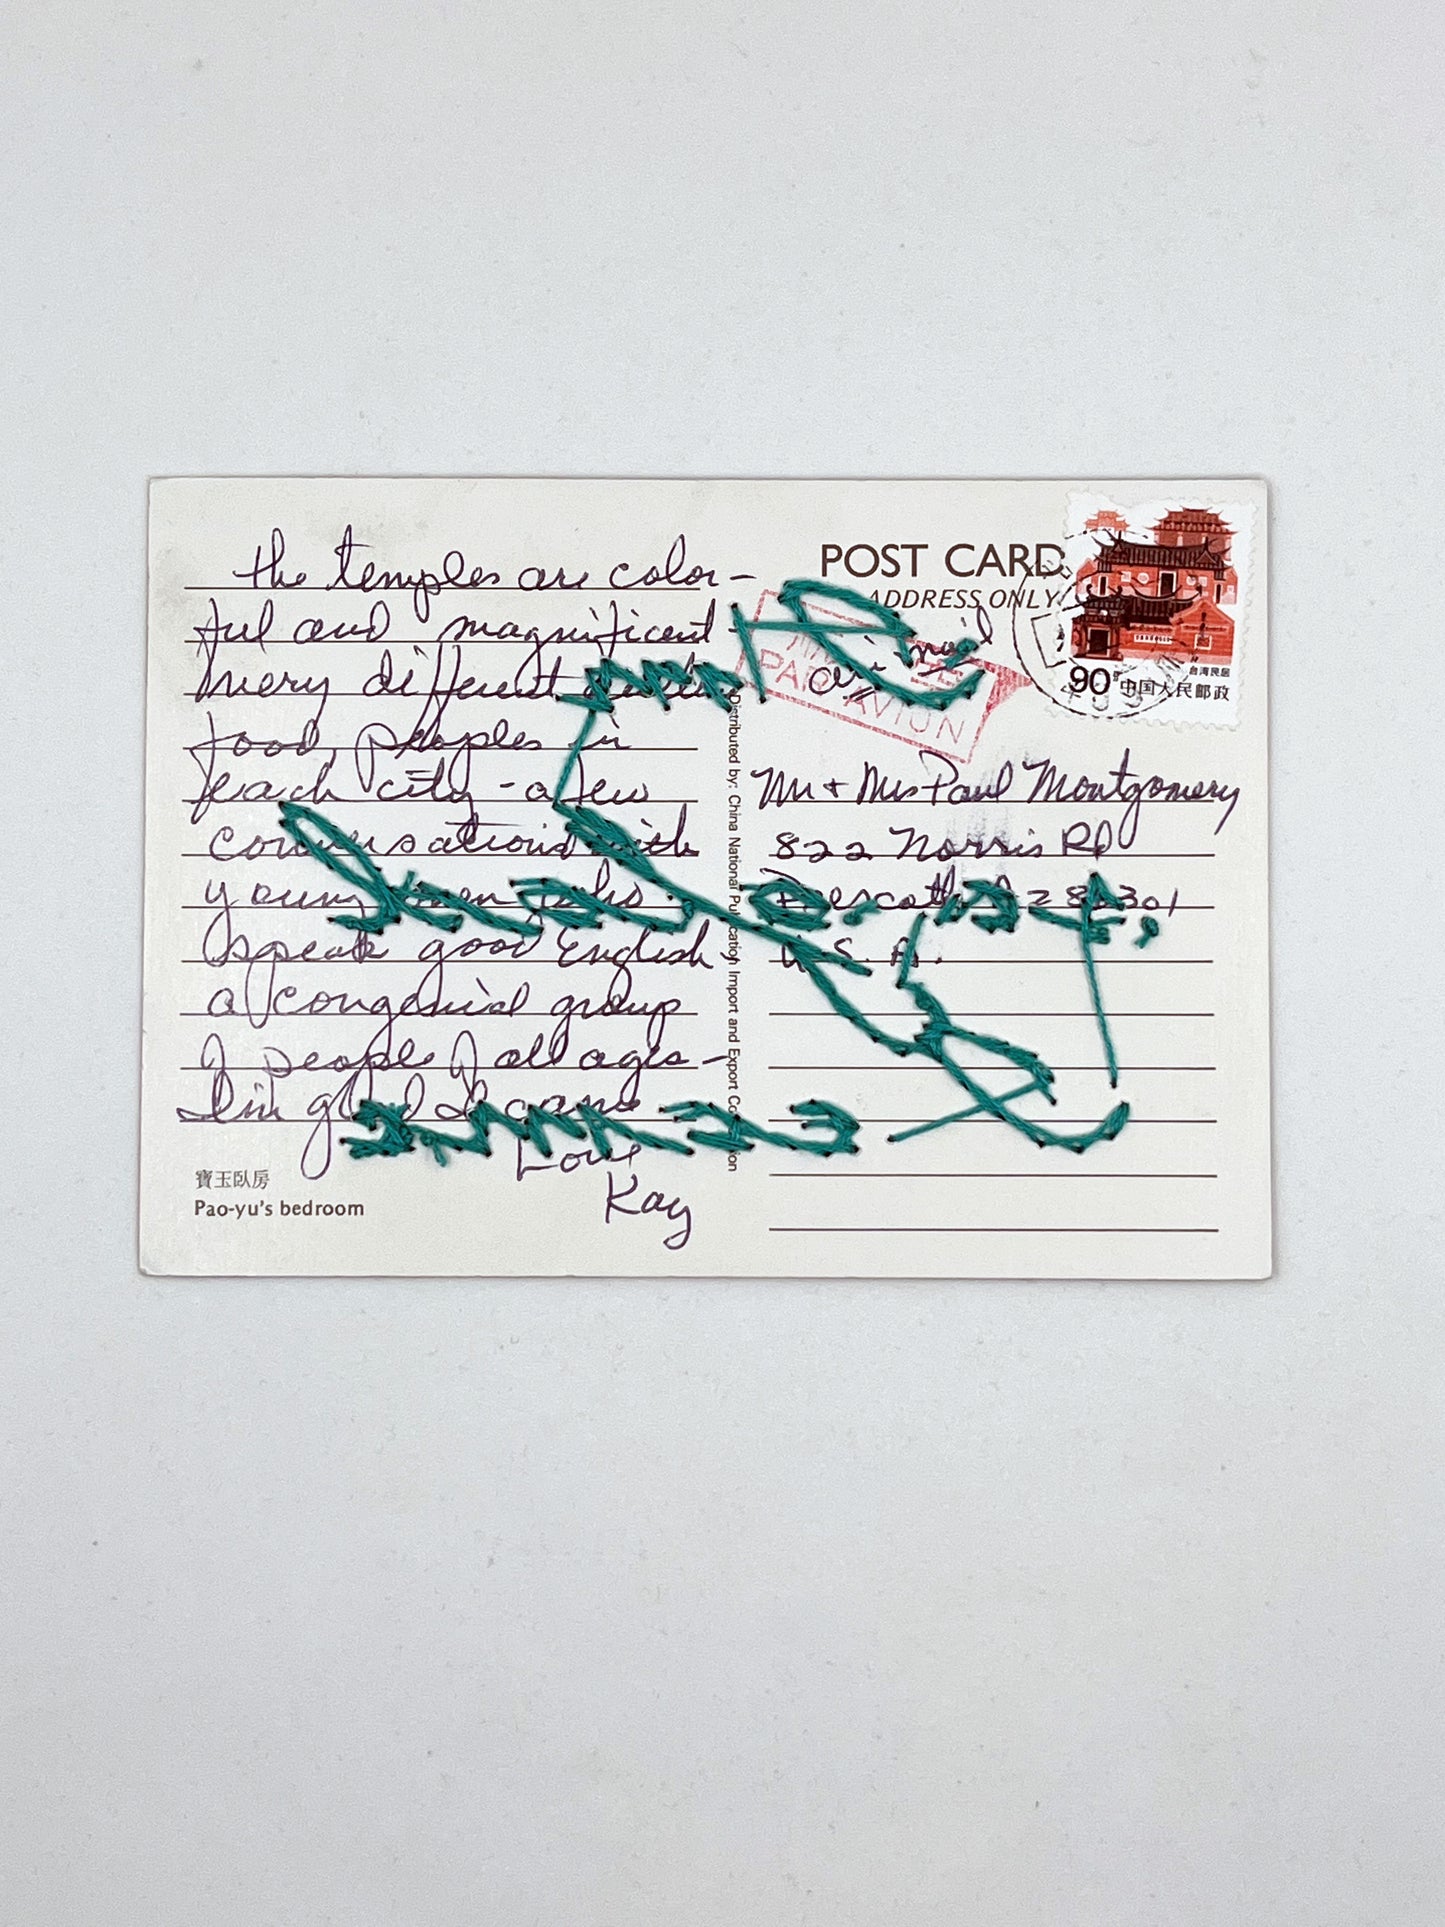 the temples are color-
ful and magnificent -
very different
food, peoples in
each city - a few
conversations with
young men who
speak good English
a congenial group
of people of all ages -
I'm glad I came
Love
Kay
寶玉臥房
Pao-yu's bedroom
Distributed by: China National Publication Import and Export
POST CARD
ADDRESS ONLY
air mail
PAR AVION
90分
中国人民邮政
台湾民居
Mr + Mrs Paul Montgomery
822 Norris Rd
Prescott, AZ 86301
U.S.A.